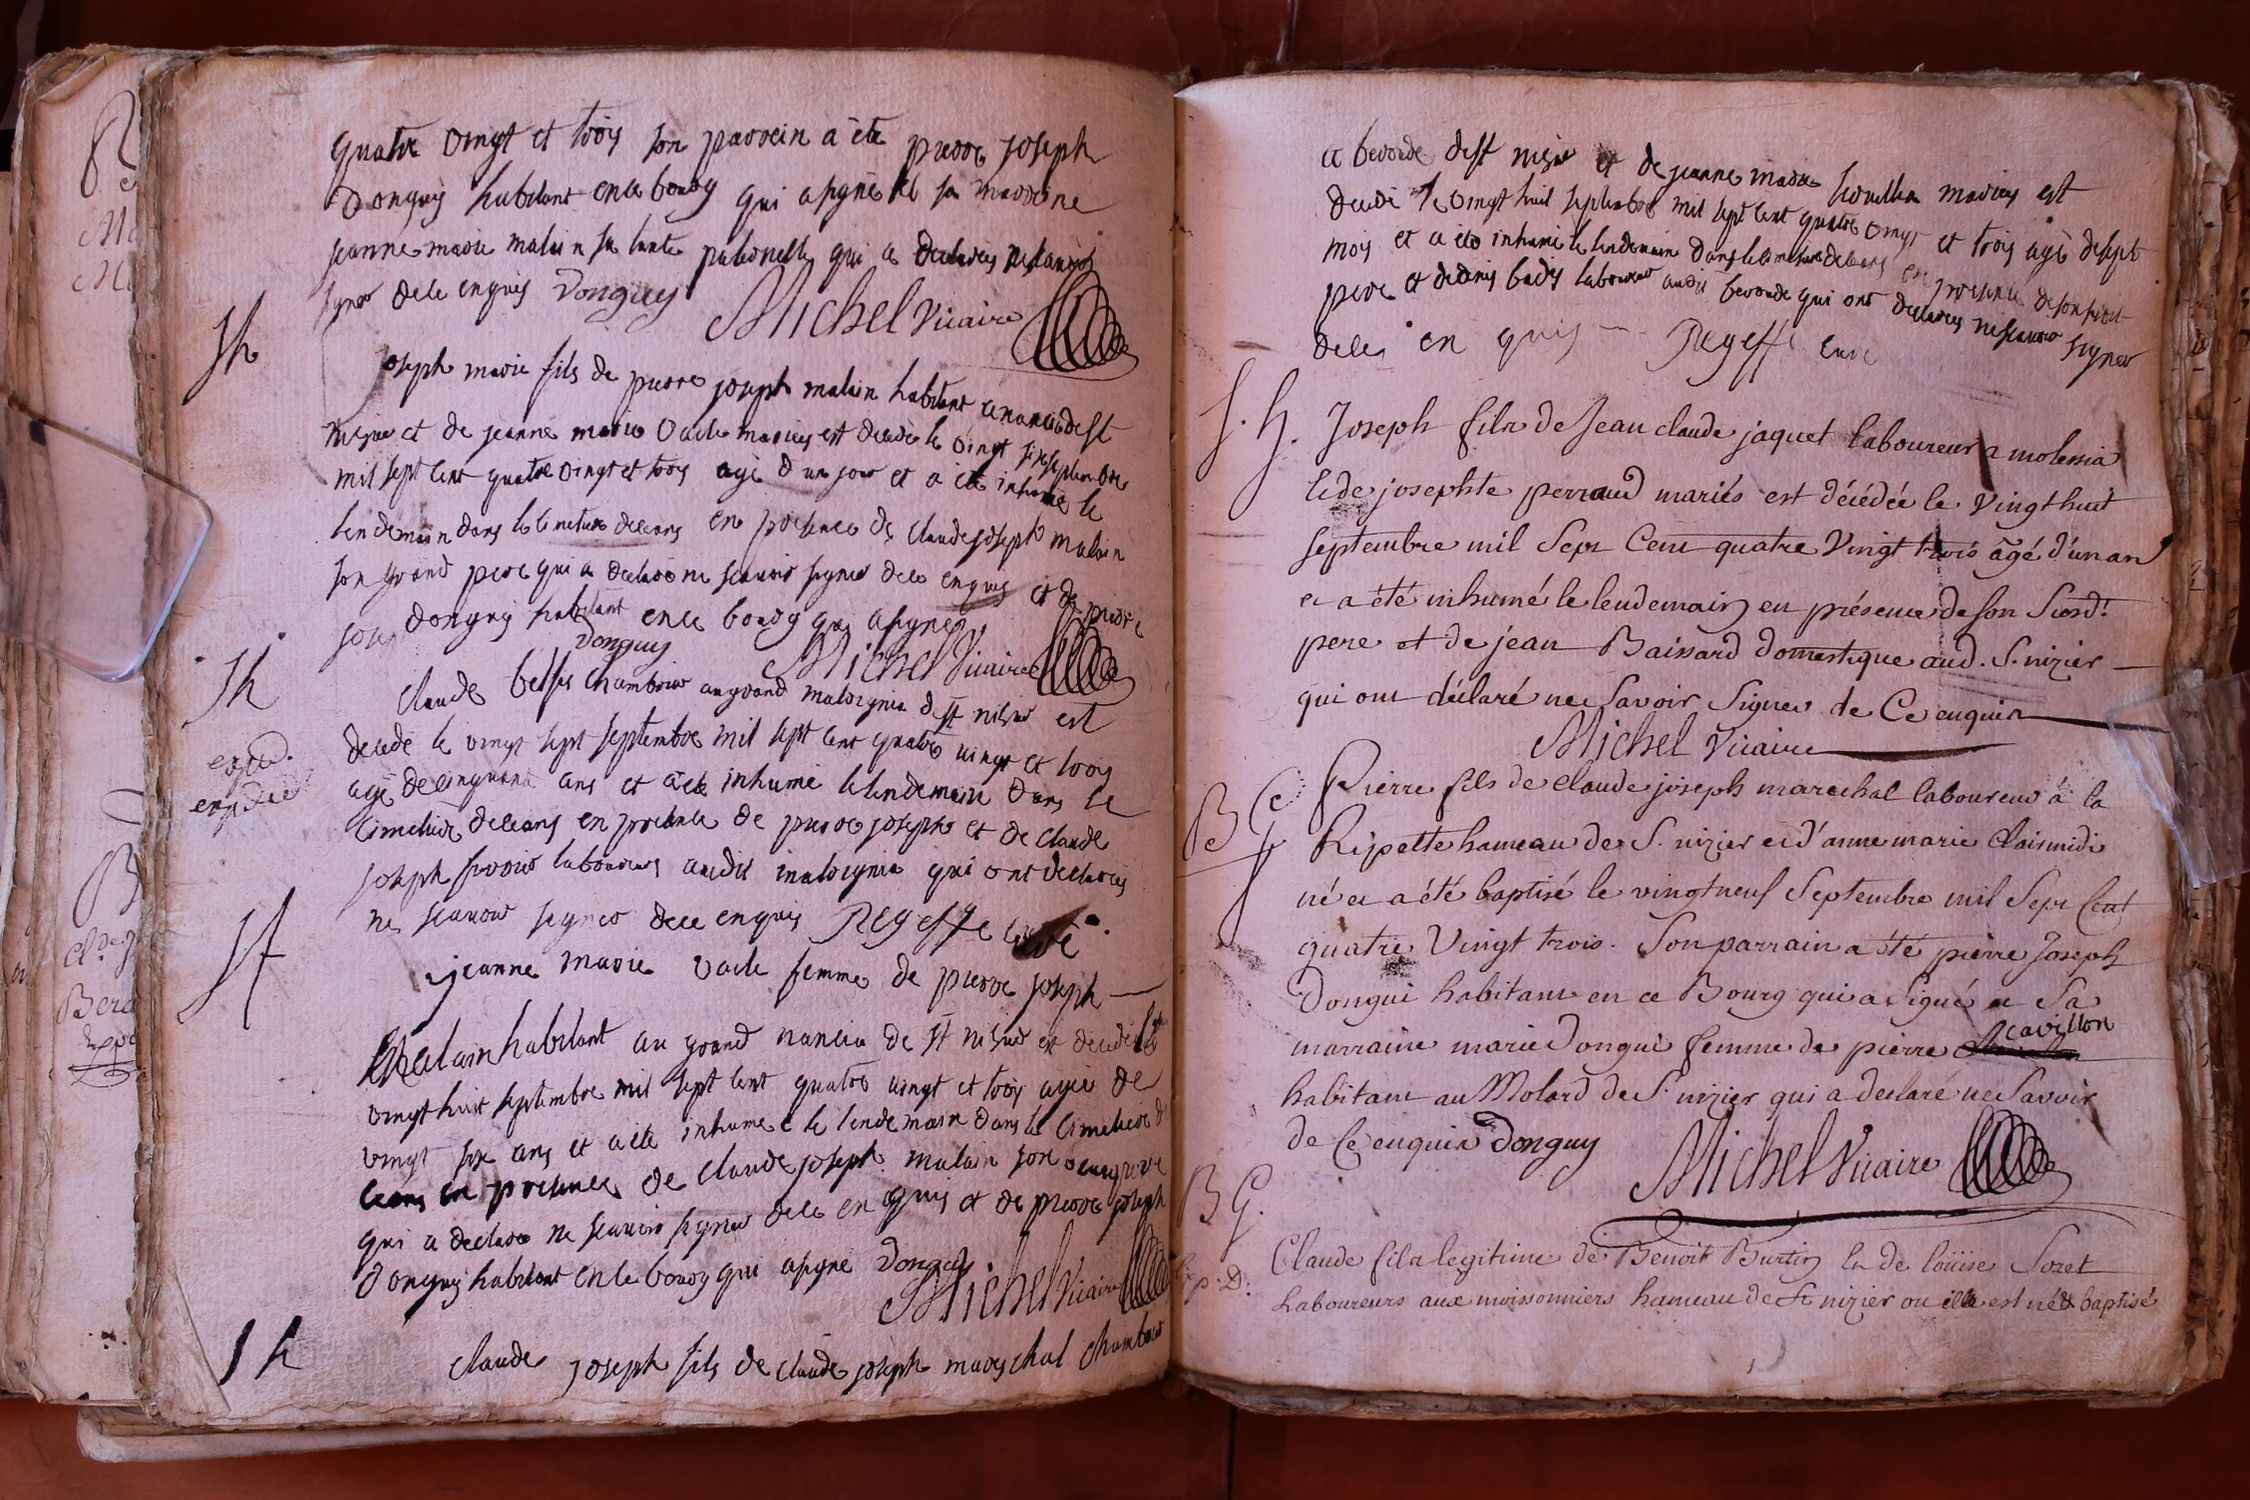 quatre vingt et trois son parrein a été pierre joseph
Donguy habitant en ce bourg qui a signé et sa marreine
jeanne marie malain sa tante paternelle qui a declarés ne scavoir
signer de ce enquis Donguy Michel Vicaire
Sh
joseph marie fils de pierre joseph malain habitant a nancia de st
nizier et de jeanne marie vacle mariés est decedé le vingt six septembre
mil sept cent quatre vingt et trois agé d'un jour et a été inhumé le
lendemain dans le cimetiere de ceans en presence de claude joseph malain
son grand pere qui a declaré ne scavoir signer de ce enquis et de pierre
jos donguy habitant en ce bourg qui a signé
Donguy Michel Vicaire
Sh
claude chambrier au grand malorgnia de st nizier est
decedé le vingt sept septembre mil sept cent quatre vingt et trois
expd.
agé de cinquante ans et a été inhumé le lendemain dans le
cimetiere de ceans en presence de pierre joseph et de claude
joseph laboureurs audit malorgnia qui ont declarés
ne scavoir signer de ce enquis Regeffe curé
Sf
jeanne marie vacle femme de pierre joseph
malain habitant au grand nancia de st nizier est decedée le
vingt huit septembre mil sept cent quatre vingt et trois agée de
vingt six ans et a été inhumée le lendemain dans le cimetiere de
ceans en presence de claude joseph malain son
qui a declaré ne scavoir signer de ce enquis et de pierre joseph
donguy habitant en ce bourg qui a signé Donguy
Michel Vicaire
Sh
claude joseph fils de claude joseph mareschal
a bevorde de st nizier et de jeanne marie mariés est
decedé le vingt huit septembre mil sept cent quatre vingt et trois agé de sept
mois et a été inhumé le lendemain dans le cimetiere de ceans en presence de son susdit
pere et de denis laboureur audit bevorde qui ont declarés ne scavoir signer
de ce enquis Regeffe curé
S. h.
Joseph fils de Jean claude jaquet laboureur a molessia
et de josephte perraud mariés est décédée le vingt huit
septembre mil Sept Cent quatre Vingt trois âgé d'un an
et a été inhumé le lendemain en présence de son Susd.t
pere et de jean Baissard domestique aud. S. nizier
qui ont déclaré ne Savoir Signer de Ce enquis
Michel Vicaire
B G
Pierre fils de claude joseph marechal laboureur à la
Ripette hameau de S. nizier et d'anne marie
né et a été baptisé le vingt neuf Septembre mil Sept Cent
quatre Vingt trois. Son parrain a été pierre Joseph
Dongui habitant en ce Bourg qui a Signé et Sa
marraine marie Dongui femme de pierre cavillon
habitant au Molard de S. nizier qui a declaré ne Savoir
de Ce enquis Donguy Michel Vicaire
B G.
Claude fils legitime de Benoit Burtin et de loüise Soret
laboureurs aux moissonniers hameau de St nizier ou il est né et baptisé